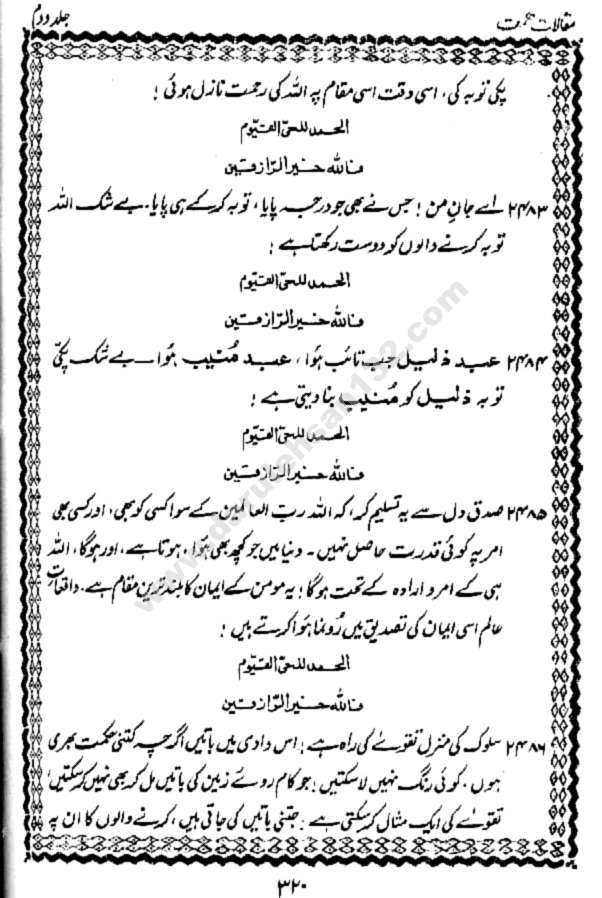 مقالات حکمت
جلد دوم
پکی توبہ کی، اسی وقت اسی مقام پہ اللہ کی رحمت نازل ہوئی!
الحمد للحی القیّوم
فاللہ خیر الرّازقین
۲۴۸۳ اے جانِ من! جس نے بھی جو درجہ پایا، توبہ کرکے ہی پایا۔ بے شک اللہ
توبہ کرنے والوں کو دوست رکھتا ہے!
الحمد للحی القیّوم
فاللہ خیر الرّازقین
۲۴۸۴ عبد ذلیل جب تائب ہؤا، عبد مُنیب ہؤا۔ بے شک پکّی
توبہ ذلیل کو مُنیب بنا دیتی ہے!
الحمد للحی القیّوم
فاللہ خیر الرّازقین
۲۴۸۵ صدق دل سے یہ تسلیم کر، کہ اللہ ربّ العالمین کے سوا کسی کو بھی، اور کسی بھی
امر پہ کوئی قدرت حاصل نہیں۔ دنیا میں جو کچھ بھی ہؤا، ہوتا ہے، اور ہوگا، اللہ
ہی کے امر و ارادہ کے تحت ہوگا! یہ مومن کے ایمان کا بلند ترین مقام ہے۔ واقعات
عالم اسی ایمان کی تصدیق میں رُونما ہؤا کرتے ہیں!
الحمد للحی القیّوم
فاللہ خیر الرّازقین
۲۴۸۶ سلوک کی منزل تقوےٰ کی راہ ہے! اس وادی میں باتیں اگرچہ کتنی حکمت بھری
ہوں، کوئی رنگ نہیں لا سکتیں! جو کام روئے زمین کی باتیں مل کر بھی نہیں کر سکتیں
تقوےٰ کی ایک مثال کر سکتی ہے! جتنی باتیں کی جاتی ہیں، کرنے والوں کا ان پہ
۳۲۰
www.darulehsan132.com